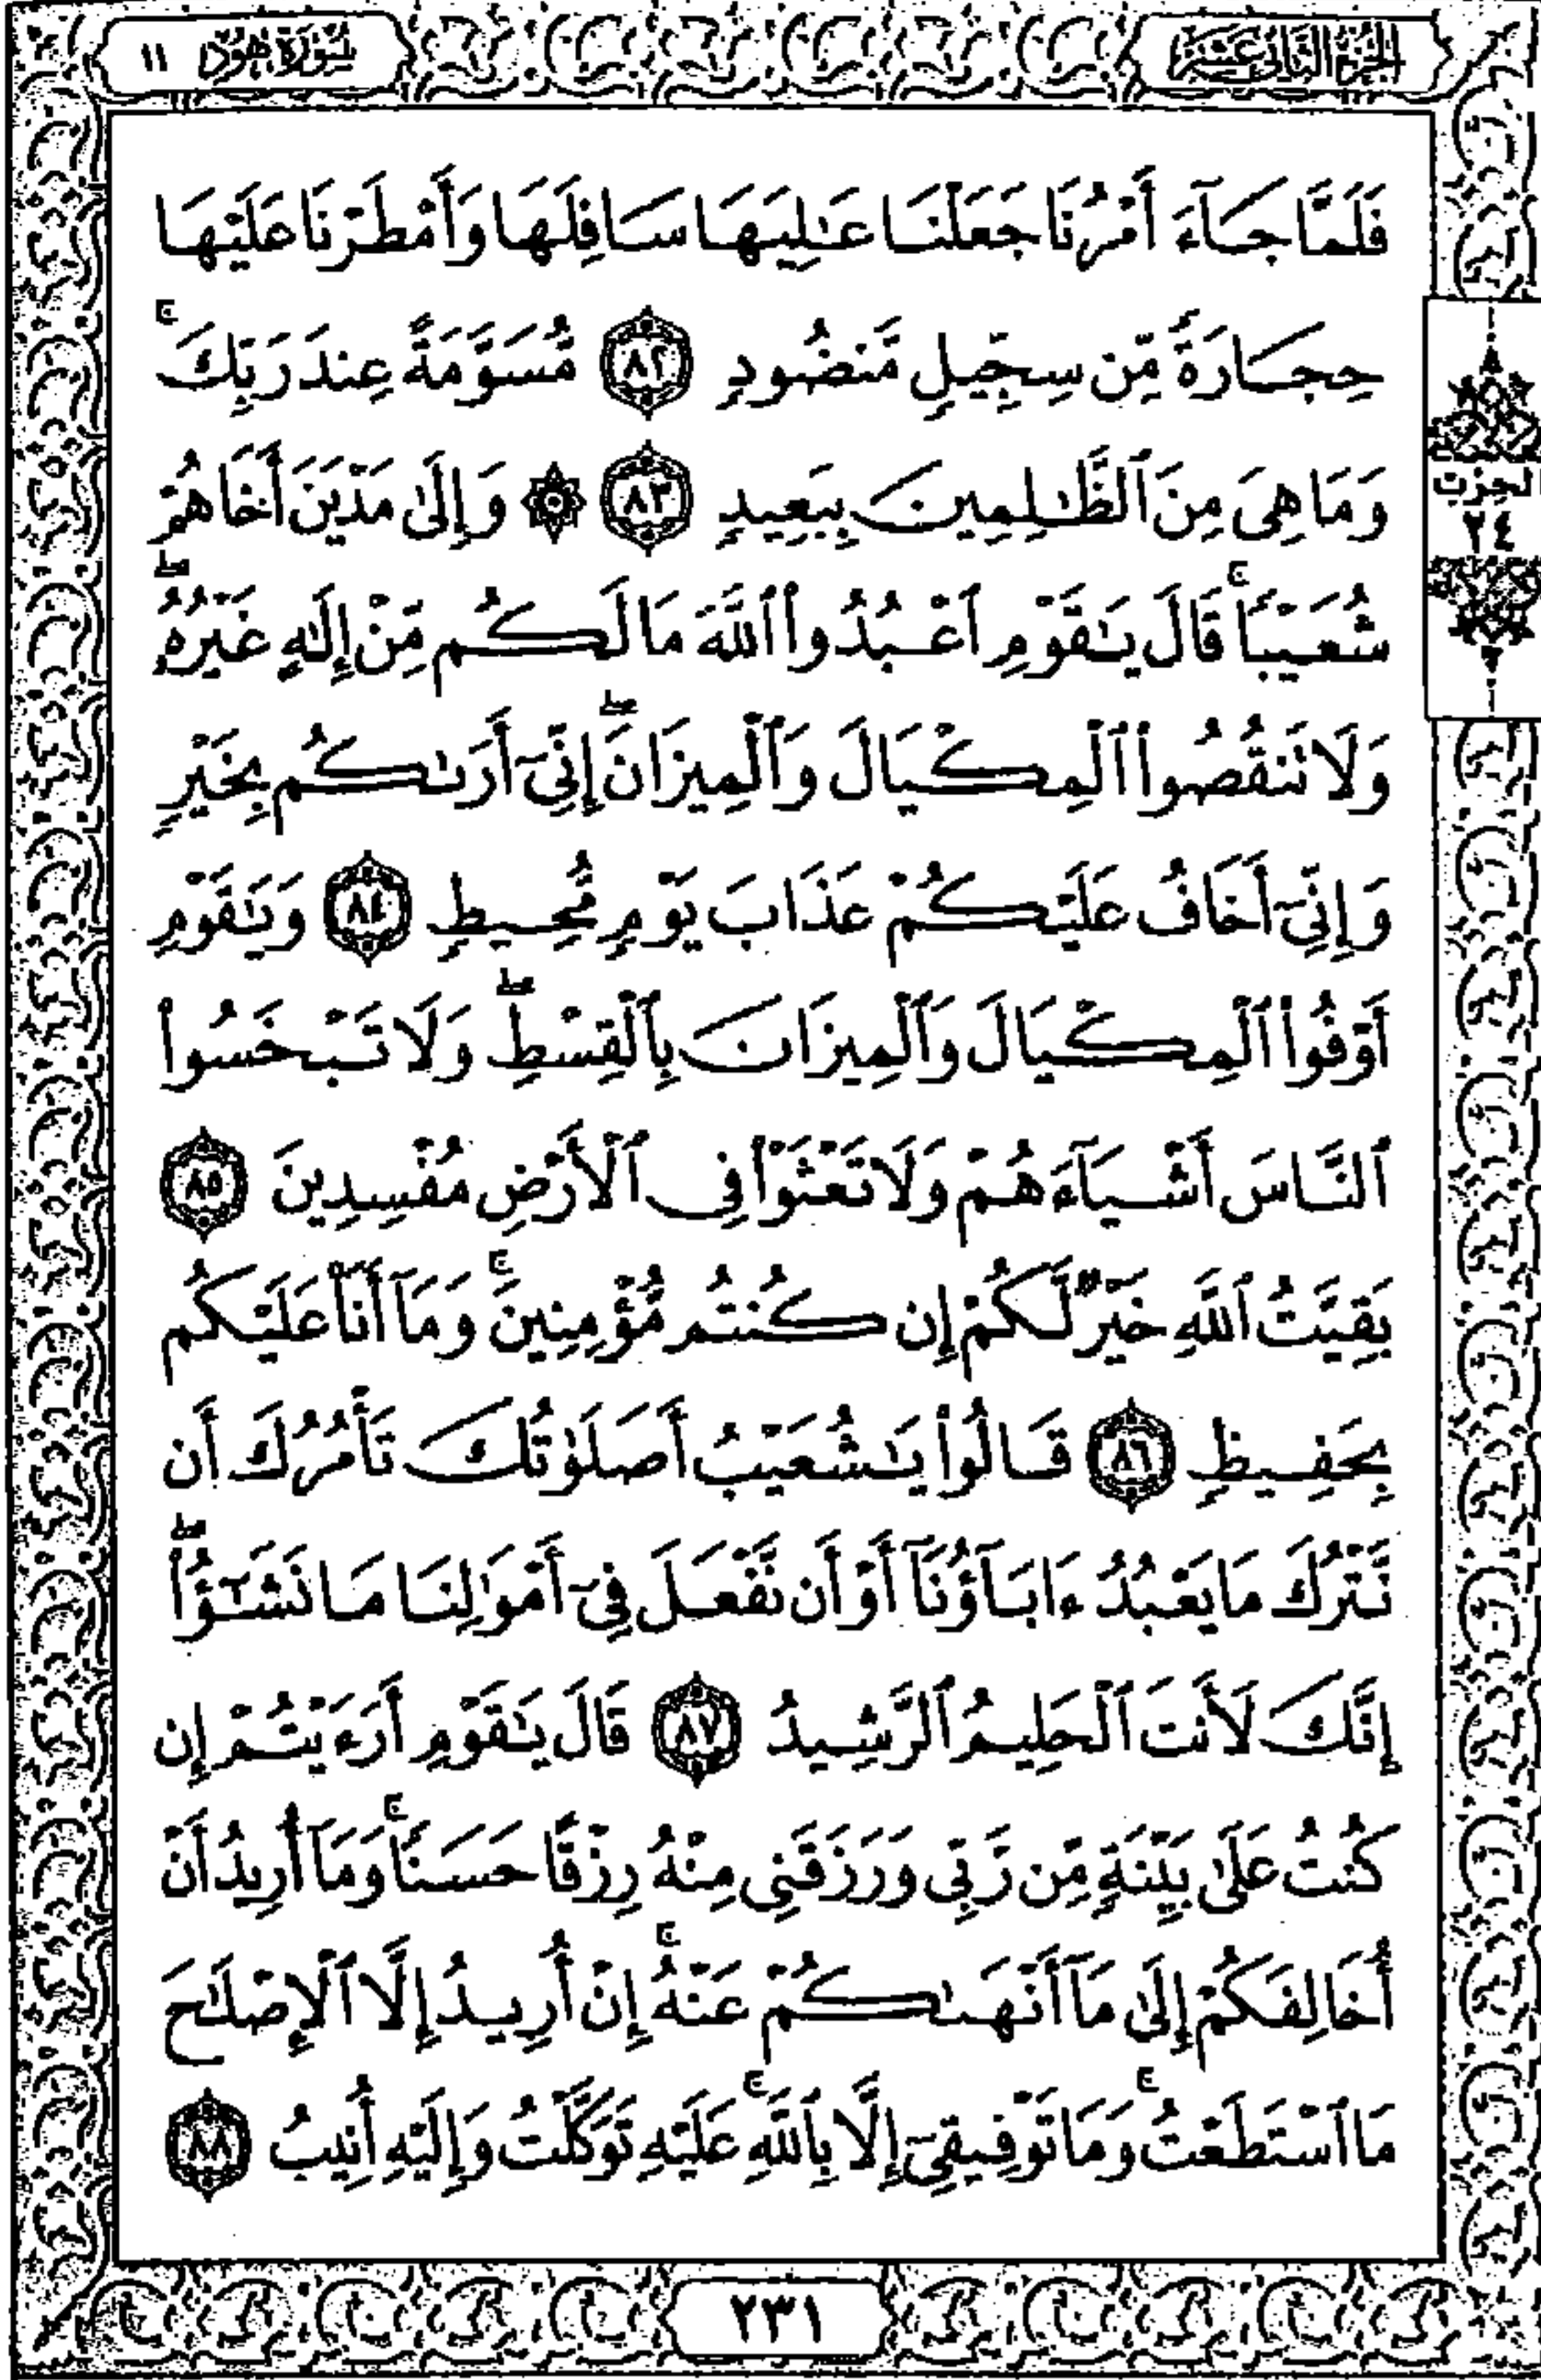 الجزء الثاني عشر
سورة هود ١١
فَلَمَّا جَآءَ أَمْرُنَا جَعَلْنَا عَٰلِيَهَا سَافِلَهَا وَأَمْطَرْنَا عَلَيْهَا
حِجَارَةً مِّن سِجِّيلٍ مَّنضُودٍ ٨٢ مُّسَوَّمَةً عِندَ رَبِّكَۖ
وَمَا هِىَ مِنَ ٱلظَّٰلِمِينَ بِبَعِيدٍ ٨٣ ۞ وَإِلَىٰ مَدْيَنَ أَخَاهُمْ
شُعَيْبًاۚ قَالَ يَٰقَوْمِ ٱعْبُدُوا۟ ٱللَّهَ مَا لَكُم مِّنْ إِلَٰهٍ غَيْرُهُۥۖ
وَلَا تَنقُصُوا۟ ٱلْمِكْيَالَ وَٱلْمِيزَانَۖ إِنِّىٓ أَرَىٰكُم بِخَيْرٍ
وَإِنِّىٓ أَخَافُ عَلَيْكُمْ عَذَابَ يَوْمٍ مُّحِيطٍ ٨٤ وَيَٰقَوْمِ
أَوْفُوا۟ ٱلْمِكْيَالَ وَٱلْمِيزَانَ بِٱلْقِسْطِۖ وَلَا تَبْخَسُوا۟
ٱلنَّاسَ أَشْيَآءَهُمْ وَلَا تَعْثَوْا۟ فِى ٱلْأَرْضِ مُفْسِدِينَ ٨٥
بَقِيَّتُ ٱللَّهِ خَيْرٌ لَّكُمْ إِن كُنتُم مُّؤْمِنِينَۚ وَمَآ أَنَا۠ عَلَيْكُم
بِحَفِيظٍ ٨٦ قَالُوا۟ يَٰشُعَيْبُ أَصَلَوٰتُكَ تَأْمُرُكَ أَن
نَّتْرُكَ مَا يَعْبُدُ ءَابَآؤُنَآ أَوْ أَن نَّفْعَلَ فِىٓ أَمْوَٰلِنَا مَا نَشَٰٓؤُا۟ۖ
إِنَّكَ لَأَنتَ ٱلْحَلِيمُ ٱلرَّشِيدُ ٨٧ قَالَ يَٰقَوْمِ أَرَءَيْتُمْ إِن
كُنتُ عَلَىٰ بَيِّنَةٍ مِّن رَّبِّى وَرَزَقَنِى مِنْهُ رِزْقًا حَسَنًاۚ وَمَآ أُرِيدُ أَنْ
أُخَالِفَكُمْ إِلَىٰ مَآ أَنْهَىٰكُمْ عَنْهُۚ إِنْ أُرِيدُ إِلَّا ٱلْإِصْلَٰحَ
مَا ٱسْتَطَعْتُۚ وَمَا تَوْفِيقِىٓ إِلَّا بِٱللَّهِۚ عَلَيْهِ تَوَكَّلْتُ وَإِلَيْهِ أُنِيبُ ٨٨
الحزب
٢٤
٢٣١